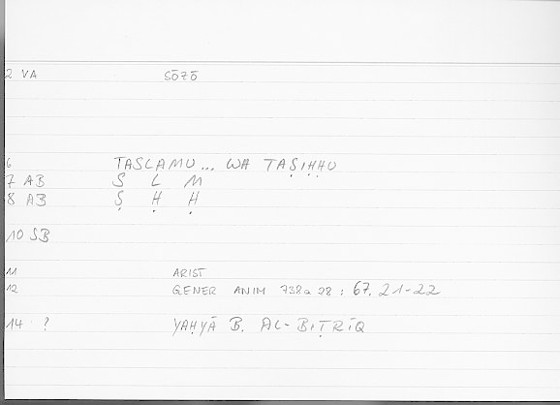 2 VA SŌZŌ
6 TASLAMU... WA TAṢIḤḤU
7 AB S L M
8 AB Ṣ Ḥ Ḥ
10 SB
11 ARIST
12 GENER ANIM 738a 28 : 67, 21-22
14 ? YAḤYĀ B. AL-BIṬRĪQ